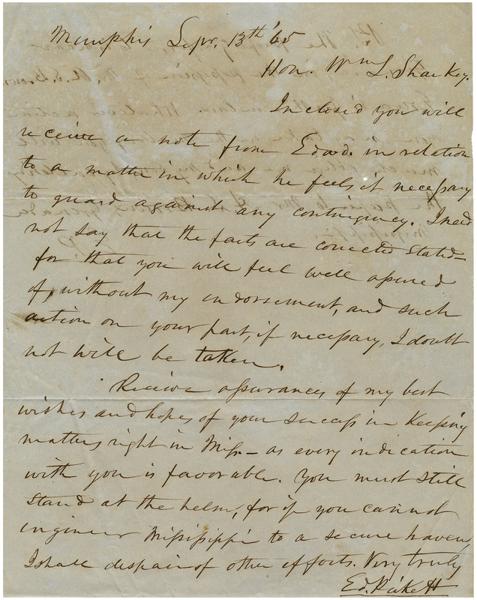 Memphis Sept. 13th '65
Hon. Wm L. Sharkey.
Inclosed you will
receive a note from Edwd. in relation
to a matter in which he feels it necessary
to guard against any contingency. I need
not say that the facts are correctly stated
for that you will feel well assured
of, without my indorsement, and such
action on your part, if necessary, I doubt
not will be taken.
Receive assurances of my best
wishes and hopes of your success in keeping
matters right in Miss. – as every indication
with you is favorable. You must still
stand at the helm, for if you cannot
engineer Mississippi to a secure haven,
I shall despair of other efforts. Very truly
Ed. Pickett